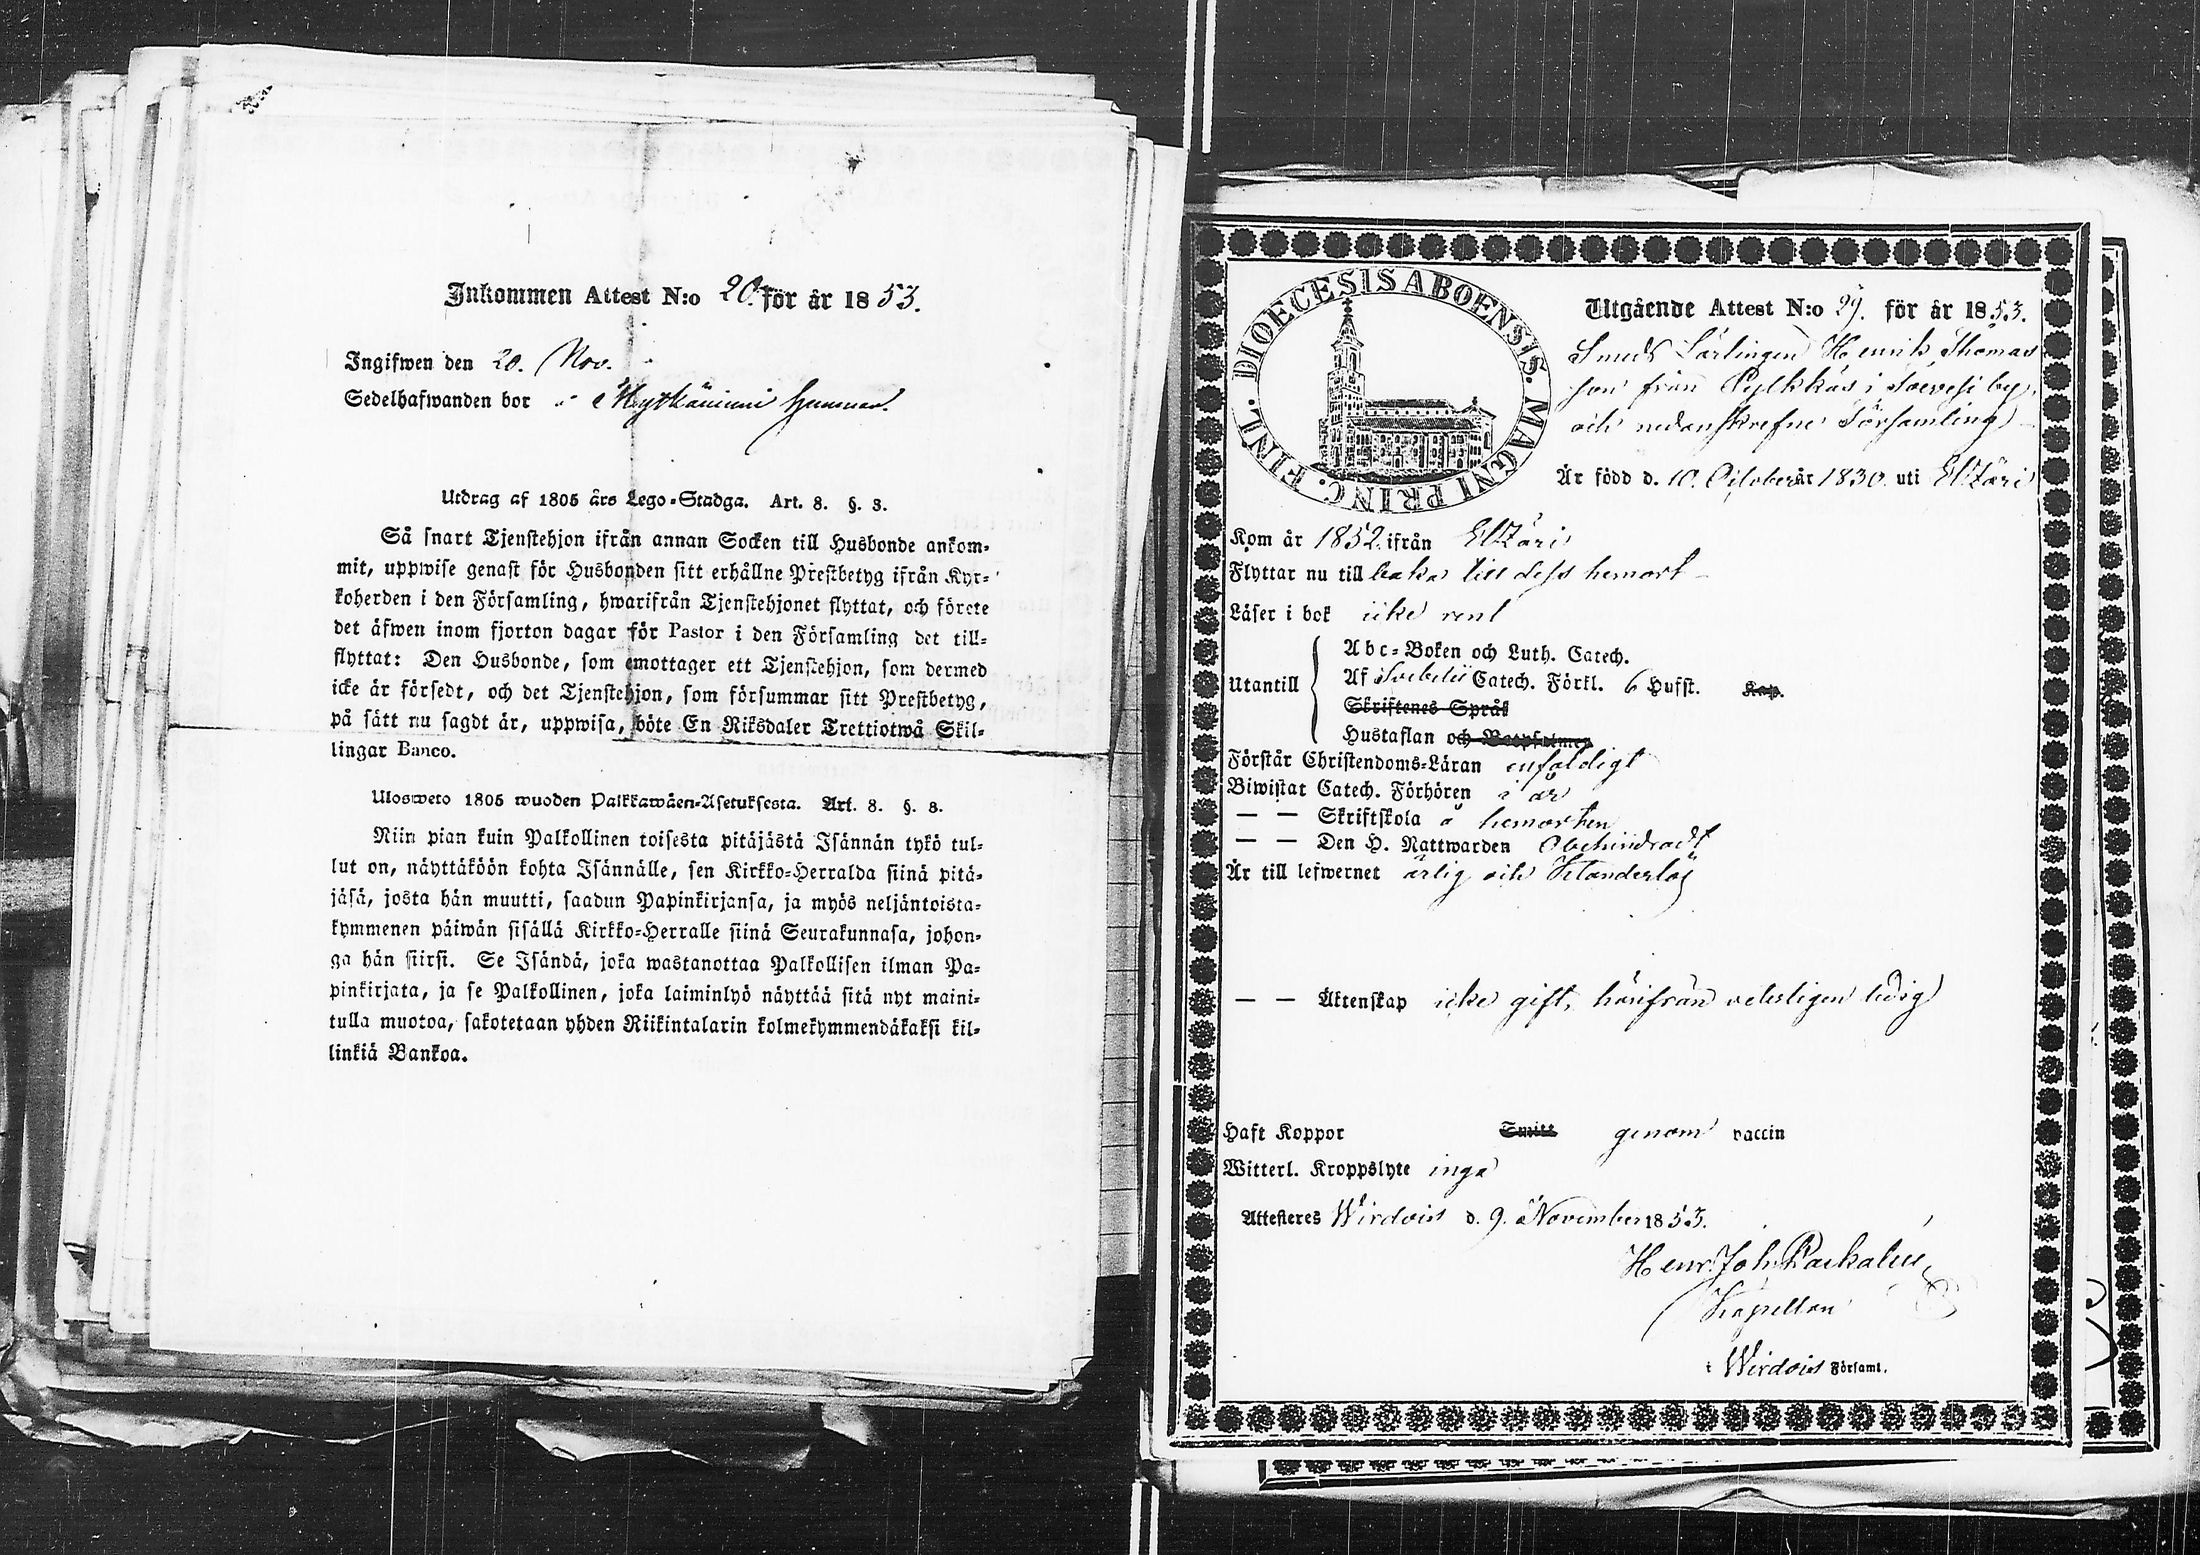 Inkommen Attest N:o 20. för år 1853.
Ingifwen den 20. Nov.
Sedelhafwanden bor
Utdrag af 1805 års Lego-Stadga. Art. 8. §. 3.
Så snart Tjenstehjon ifrån annan Socken till Husbonde ankom-
mit, uppwise genast för Husbonden sitt erhållne Prestbetyg ifrån Kyr-
koherden i den Församling, hwarifrån Tjenstehjonet flyttat, och förete
det äfwen inom fjorton dagar för Pastor i den Församling det till-
flyttat: Den Husbonde, som emottager ett Tjenstehjon, som dermed
icke är försedt, och det Tjenstehjon, som försummar sitt Prestbetyg,
på sätt nu sagdt är, uppwisa, böte En Riksdaler Trettiotwå Skil-
lingar Banco.
Ulosweto 1805 wuoden Palkkawäen-Asetuksesta. Art. 8. §. 3.
Niin pian kuin Palkollinen toisesta pitäjästä Isännän tykö tul-
lut on, näyttäköön kohta Isännälle, sen Kirkko-Herralda siinä pitä-
jäsä, josta hän muutti, saadun Papinkirjansa, ja myös neljäntoista-
kymmenen päiwän sisällä Kirkko-Herralle siinä Seurakunnasa, johon-
ga hän siirsi. Se Isändä, joka wastanottaa Palkollisen ilman Pa-
pinkirjata, ja se Palkollinen, joka laiminlyö näyttää sitä nyt maini-
tulla muotoa, sakotetaan yhden Riikintalarin kolmekymmendäkaksi kil-
linkiä Bankoa.
DIOECESIS ABOENSIS. MAGNI PRINC. FINL.
Utgående Attest N:o 29. för år 1853.
Smeds Lärlingen Henrik Thomas
son från Pylkkäs i by,
och nedanskrefne Församling
Är född d. 10. October år 1830. uti Etzäri
Kom år 1852. ifrån Etzäri
Flyttar nu till baka till dess hemort
Läser i bok icke rent
Utantill
Abc-Boken och Luth. Catech.
Af Svebelii Catech. Förkl. 6 Hufst. Kap.
Skriftenes Språk
Hustaflan och Botpsalmer
Förstår Christendoms-Läran enfaldigt
Biwistat Catech. Förhören i år
— — Skriftskola å hemorten
— — Den H. Nattwarden Obehindradt
Är till lefwernet ärlig och
— — Äktenskap icke gift, härifrån veterligen ledig
Haft Koppor Smitt genom vaccin
Witterl. Kroppslyte inga
Attesteres Wirdois d. 9. November 1853.
Henr. Joh.
Kapellan
i Wirdois Församl.